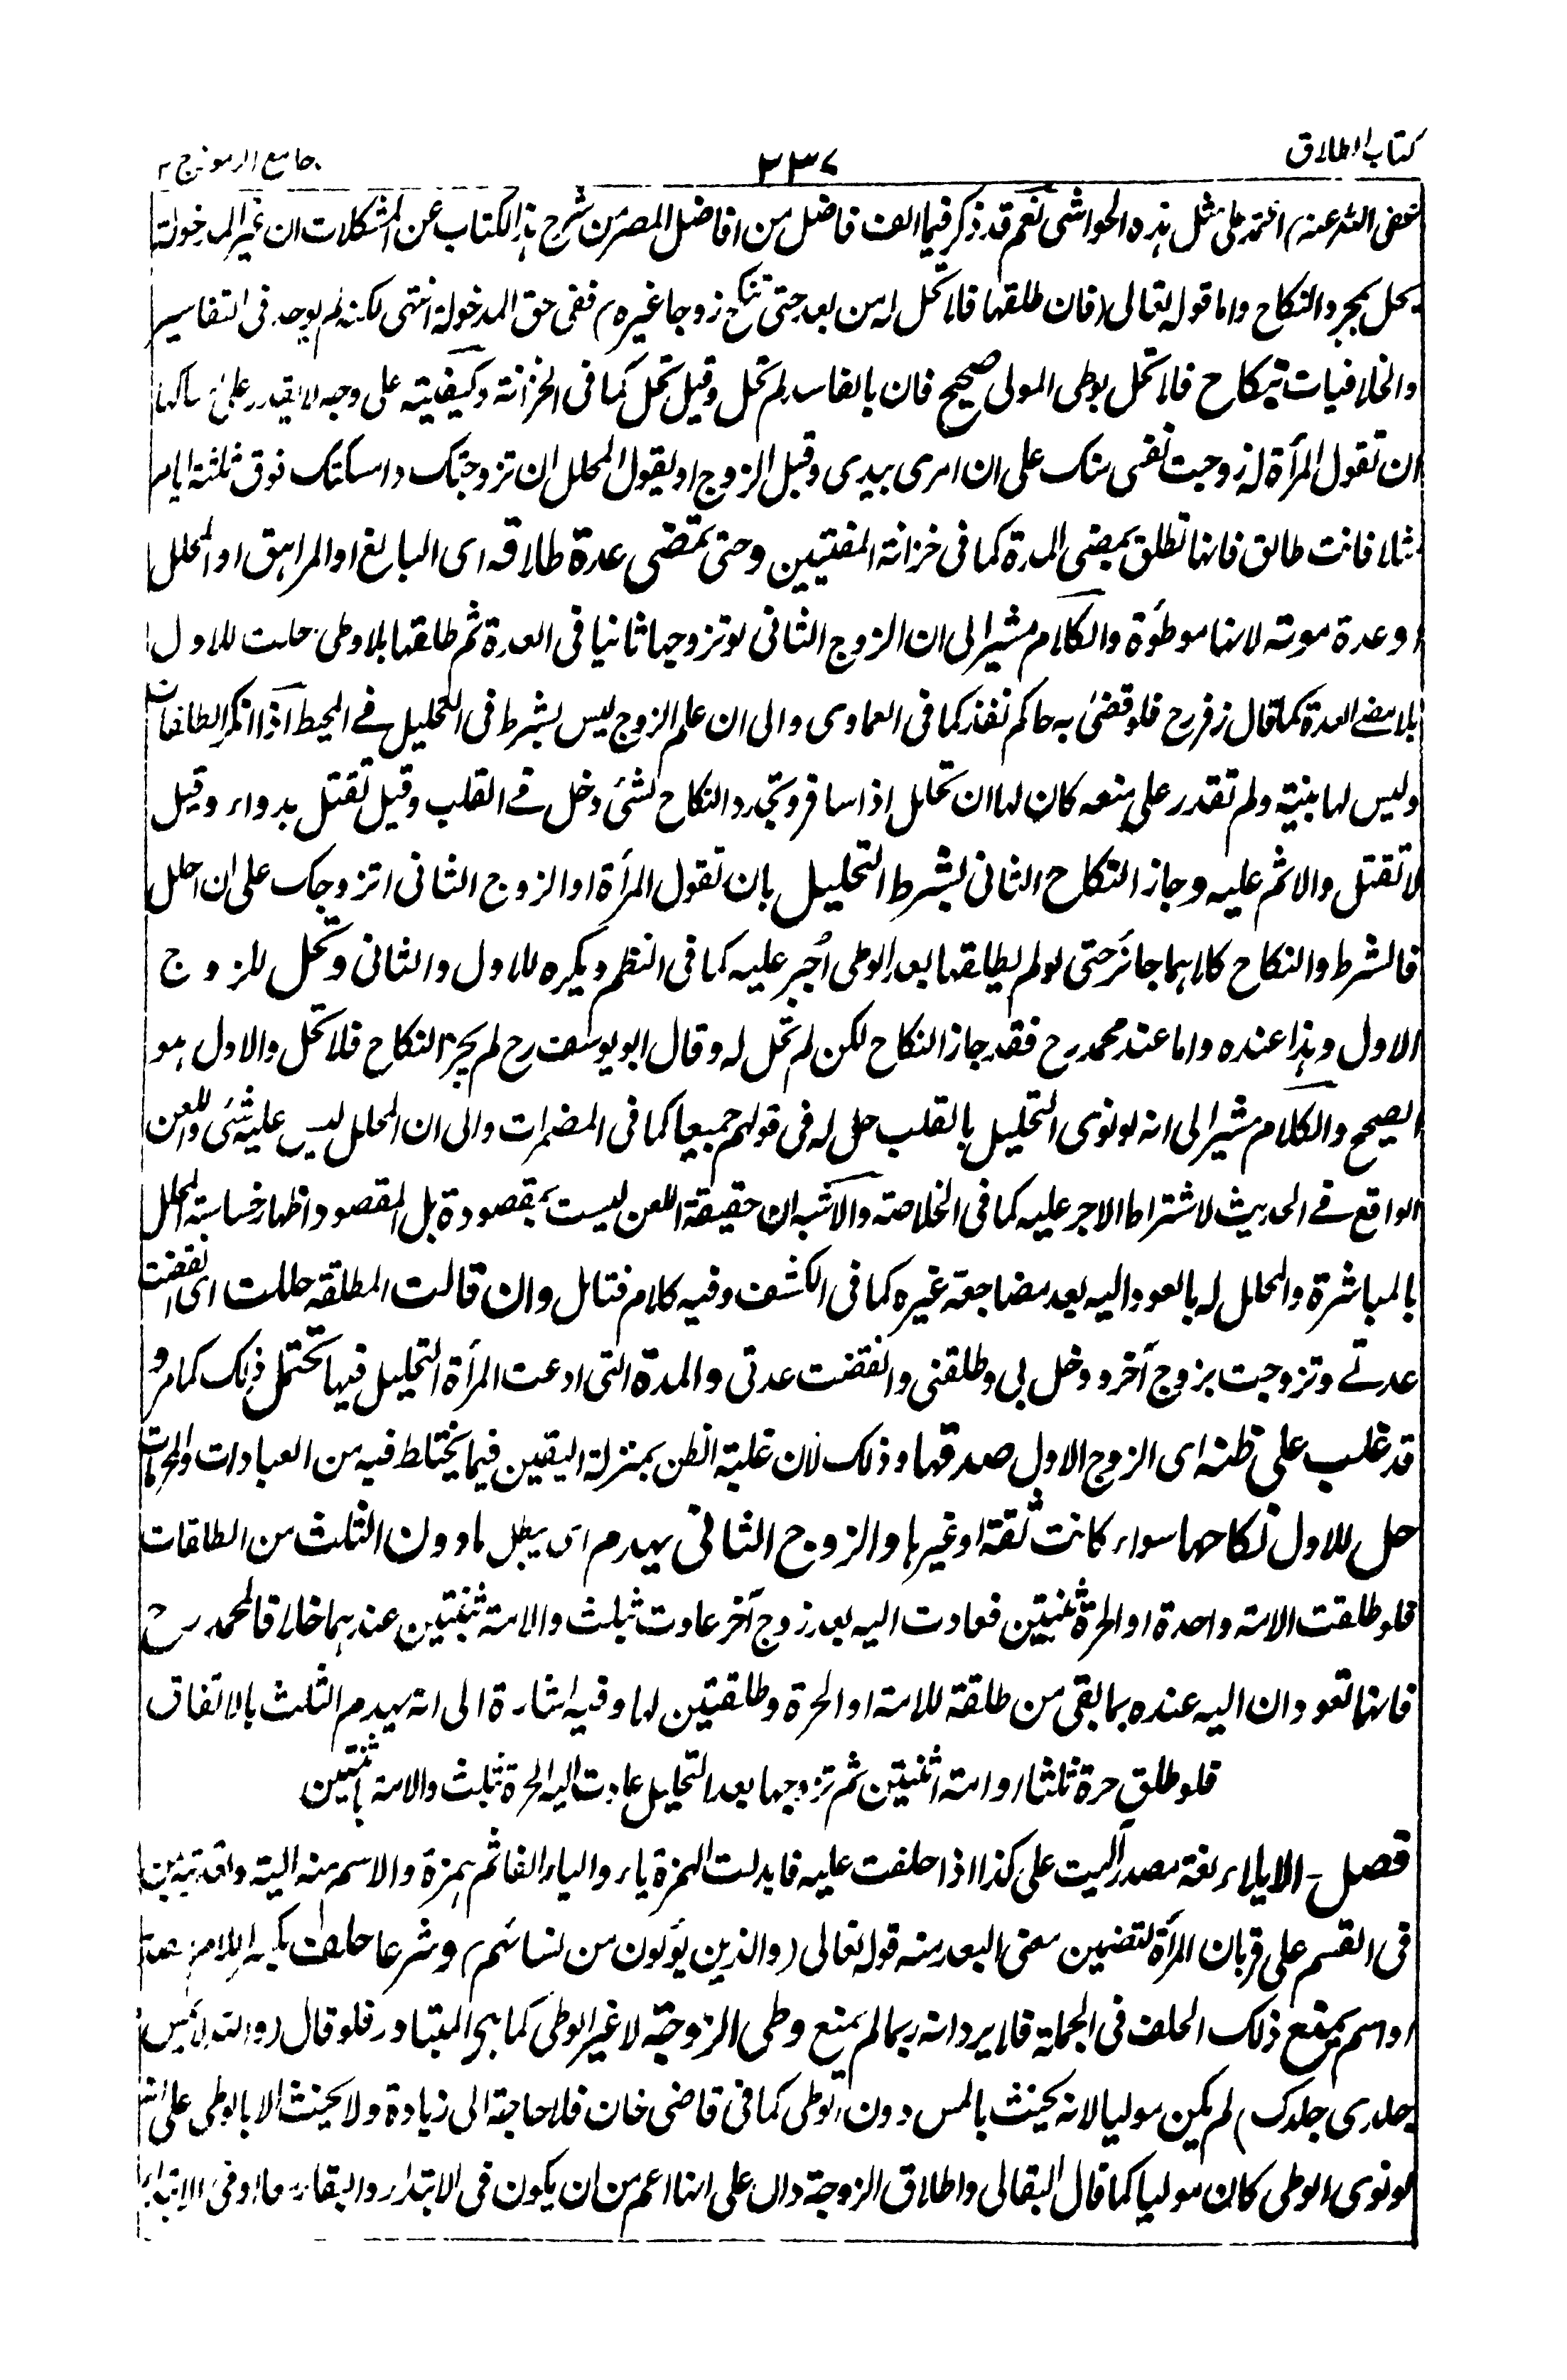 كتاب الطلاق
٣٣٧
جامع الرموز ج ٢
عفى الله عنه) اعتمد على مثل هذه الحواشى نعم قد ذكر فيما الف فاضل من افاضل المصر من شرح هذا الكتاب عن المشكلات ان غير المدخولة
يحل بمجرد النكاح واما قوله تعالى (فان طلقها فلا تحل له من بعد حتى تنكح زوجا غيره) ففى حق المدخولة انتهى لكنه لم يوجد فى التفاسير
والخلافيات بنكاح فلا تحل بوطى المولى صحيح فان بالفاسد لم تحل وقيل تحل كما فى الخزانة وكيفيته على وجه لا يقدر على امساكها
ان تقول المرأة له زوجت نفسى منك على ان امرى بيدى وقبل الزوج او يقول المحلل ان تزوجتك وامسكتك فوق ثلثة ايام
مثلا فانت طالق فانها تطلق بمضى المدة كما فى خزانة المفتيين وحتى تمضى عدة طلاقه اى البالغ او المراهق او المحلل
او عدة موته لانها موطؤة والكلام مشير الى ان الزوج الثانى لو تزوجها ثانيا فى العدة ثم طلقها بلا وطى حلت للاول
بلا مضے العدة كما قال زفر رح فلو قضى به حاكم نفذ كما فى العمادى والى ان علم الزوج ليس بشرط فى التحليل فے المحيط اذا انكر الطلقات
وليس لها بينة ولم تقدر على منعه كان لها ان تحلل اذا سافر وتجدد النكاح لشئ دخل فے القلب وقيل تقتل بدواء وقيل
لا تقتل والاثم عليه وجاز النكاح الثانى بشرط التحليل بان تقول المرأة او الزوج الثانى اتزوجك على ان احلل
فالشرط والنكاح كلاهما جائز حتى لو لم يطلقها بعد الوطى اُجبر عليه كما فى النظم ويكره للاول والثانى وتحل للزوج
الاول وهذا عنده واما عند محمد رح فقد جاز النكاح لكن لم تحل له وقال ابو يوسف رح لم يجز النكاح فلا تحل والاول هو
الصحيح والكلام مشير الى انه لو نوى التحليل بالقلب حل له فى قولهم جميعا كما فى المضمرات والى ان المحلل ليس عليه شئ واللعن
الواقع فے الحديث لاشتراط الاجر عليه كما فى الخلاصة والاشبه ان حقيقة اللعن ليست بمقصودة بل المقصود اظهار خساسة المحلل
بالمباشرة والمحلل له بالعود اليه بعد مضاجعة غيره كما فى الكشف وفيه كلام فتامل وان قالت المطلقة حللت اى انقضت
عدتے وتزوجت بزوج آخر ودخل بى وطلقنى وانقضت عدتى والمدة التى ادعت المرأة التحليل فيها تحتمل ذلك كما مر و
قد غلب على ظنه اى الزوج الاول صدقها وذلك لان غلبة الظن بمنزلة اليقين فيما يختلط فيه من العبادات والحرمات
حل للاول نكاحها سواء كانت ثقة او غيرها والزوج الثانى يهدم اى يبطل ما دون الثلث من الطلقات
فلو طلقت الامة واحدة او الحرة ثنتين فعادت اليه بعد زوج آخر عادت بثلث والامة بثنتين عندهما خلافا لمحمد رح
فانها تعودان اليه عنده بما بقى من طلقة للامة او الحرة وطلقتين لها وفيه اشارة الى انه يهدم الثلث بالاتفاق
فلو طلق حرة ثلثا او امة اثنتين ثم تزوجها بعد التحليل عادت اليه الحرة بثلث والامة باثنتين
فصل - الايلاء لغة مصدر آليت على كذا اذا حلفت عليه فابدلت الهمزة ياء والياء الفا ثم همزة والاسم منه الية وتعديته بمن
فى القسم على قربان المرأة لتضمين معنى البعد ومنه قوله تعالى (والذين يؤلون من نسائهم) وشرعا حلف
او اسم يمنع ذلك الحلف فى الجملة فلا يرد انه ربما لم يمنع وطى الزوجة لا غير الوطى كما هو المتبادر فلو قال (والله لا يمس
جلدى جلدك) لم يكن موليا لانه يحنث بالمس دون الوطى كما فى قاضى خان فلا حاجة الى زيادة ولا يحنث الا بالوطى على انه
لو نوى الوطى كان موليا كما قال البقالى واطلاق الزوجة دال على انها اعم من ان يكون فى الابتداء والبقاء معا او فى الابتداء